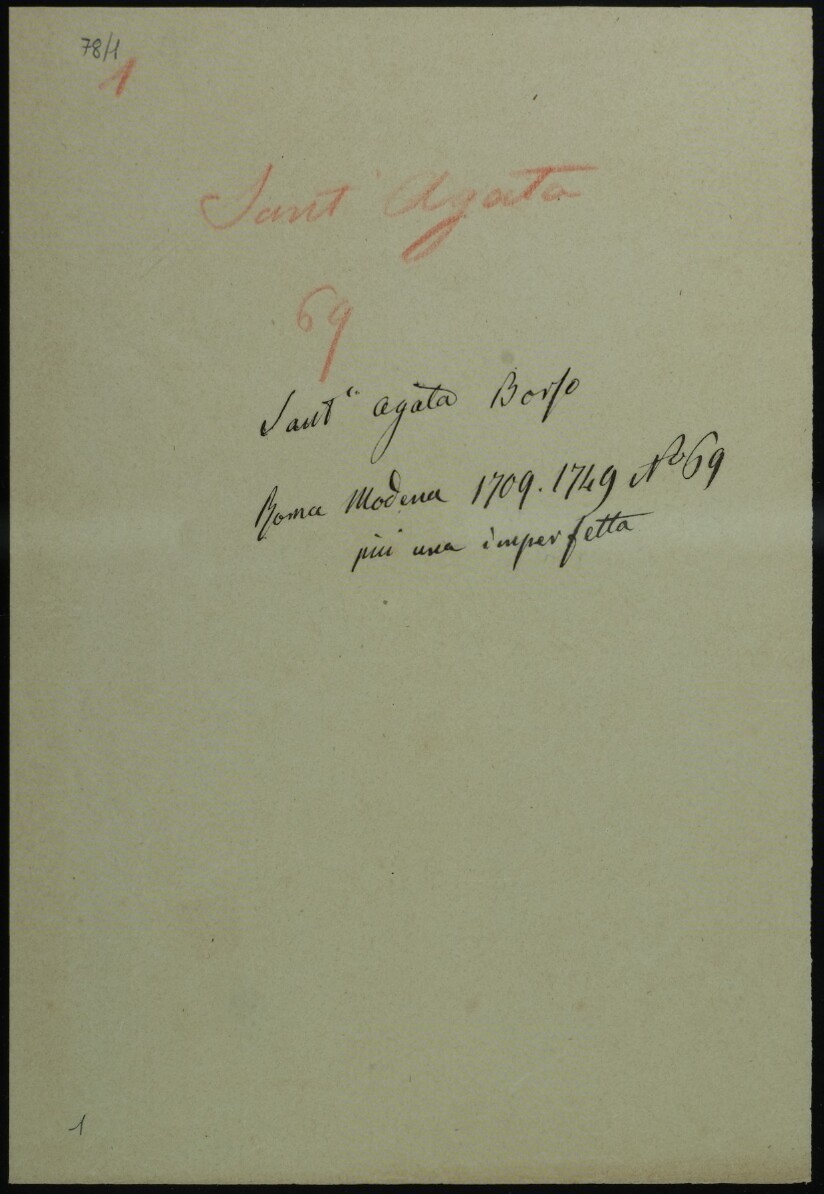 78/1
1
Sant' Agata
69
Sant'' Agata Borso
Roma Modena 1709.1749 No 69
più una imperfetta
1